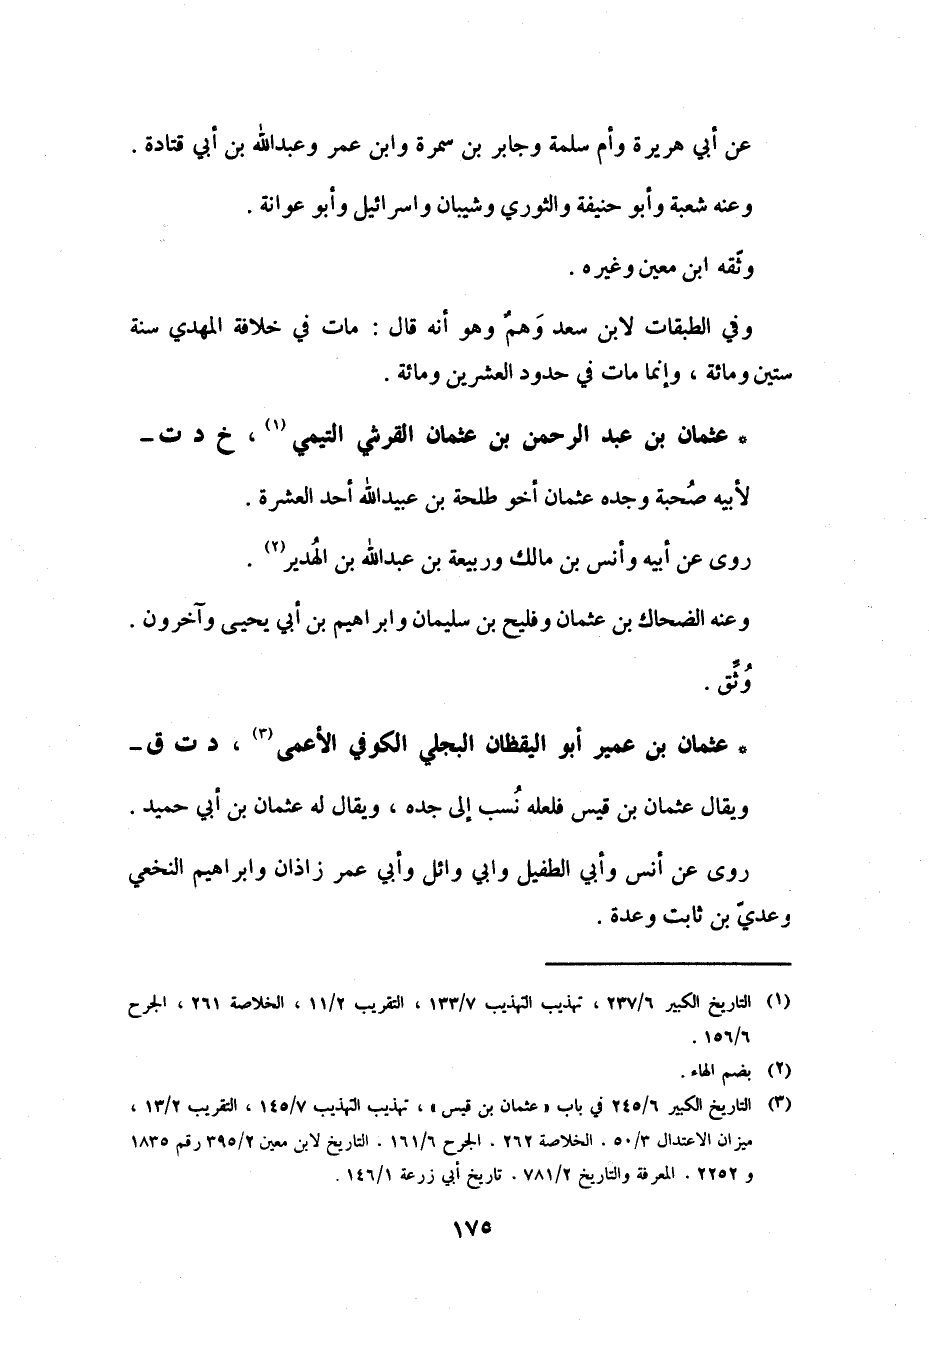 عن أبي هريرة وأم سلمة وجابر بن سمرة وابن عمر وعبدالله بن أبي قتادة .
وعنه شعبة وأبو حنيفة والثوري وشيبان واسرائيل وأبو عوانة .
وثّقه ابن معين وغيره .
وفي الطبقات لابن سعد وَهمٌ وهو أنه قال : مات في خلافة المهدي سنة
ستين ومائة ، وإنما مات في حدود العشرين ومائة .
* عثمان بن عبد الرحمن بن عثمان القرشي التيمي (١) ، خ د ت ـ
لأبيه صُحبة وجده عثمان أخو طلحة بن عبيدالله أحد العشرة .
روى عن أبيه وأنس بن مالك وربيعة بن عبدالله بن الهُدير (٢) .
وعنه الضحاك بن عثمان وفليح بن سليمان وابراهيم بن أبي يحيى وآخرون .
وُثِّق .
* عثمان بن عمير أبو اليقظان البجلي الكوفي الأعمى (٣) ، د ت ق ـ
ويقال عثمان بن قيس فلعله نُسب إلى جده ، ويقال له عثمان بن أبي حميد .
روى عن أنس وأبي الطفيل وابي وائل وأبي عمر زاذان وابراهيم النخعي
وعديّ بن ثابت وعدة .
(١) التاريخ الكبير ٢٣٧/٦ ، تهذيب التهذيب ١٣٣/٧ ، التقريب ١١/٢ ، الخلاصة ٢٦١ ، الجرح
١٥٦/٦ .
(٢) بضم الهاء .
(٣) التاريخ الكبير ٢٤٥/٦ في باب « عثمان بن قيس » ، تهذيب التهذيب ١٤٥/٧ ، التقريب ١٣/٢ ،
ميزان الاعتدال ٥٠/٣ . الخلاصة ٢٦٢ . الجرح ١٦١/٦ . التاريخ لابن معين ٣٩٥/٢ رقم ١٨٣٥
و ٢٢٥٢ . المعرفة والتاريخ ٧٨١/٢ . تاريخ أبي زرعة ١٤٦/١ .
١٧٥